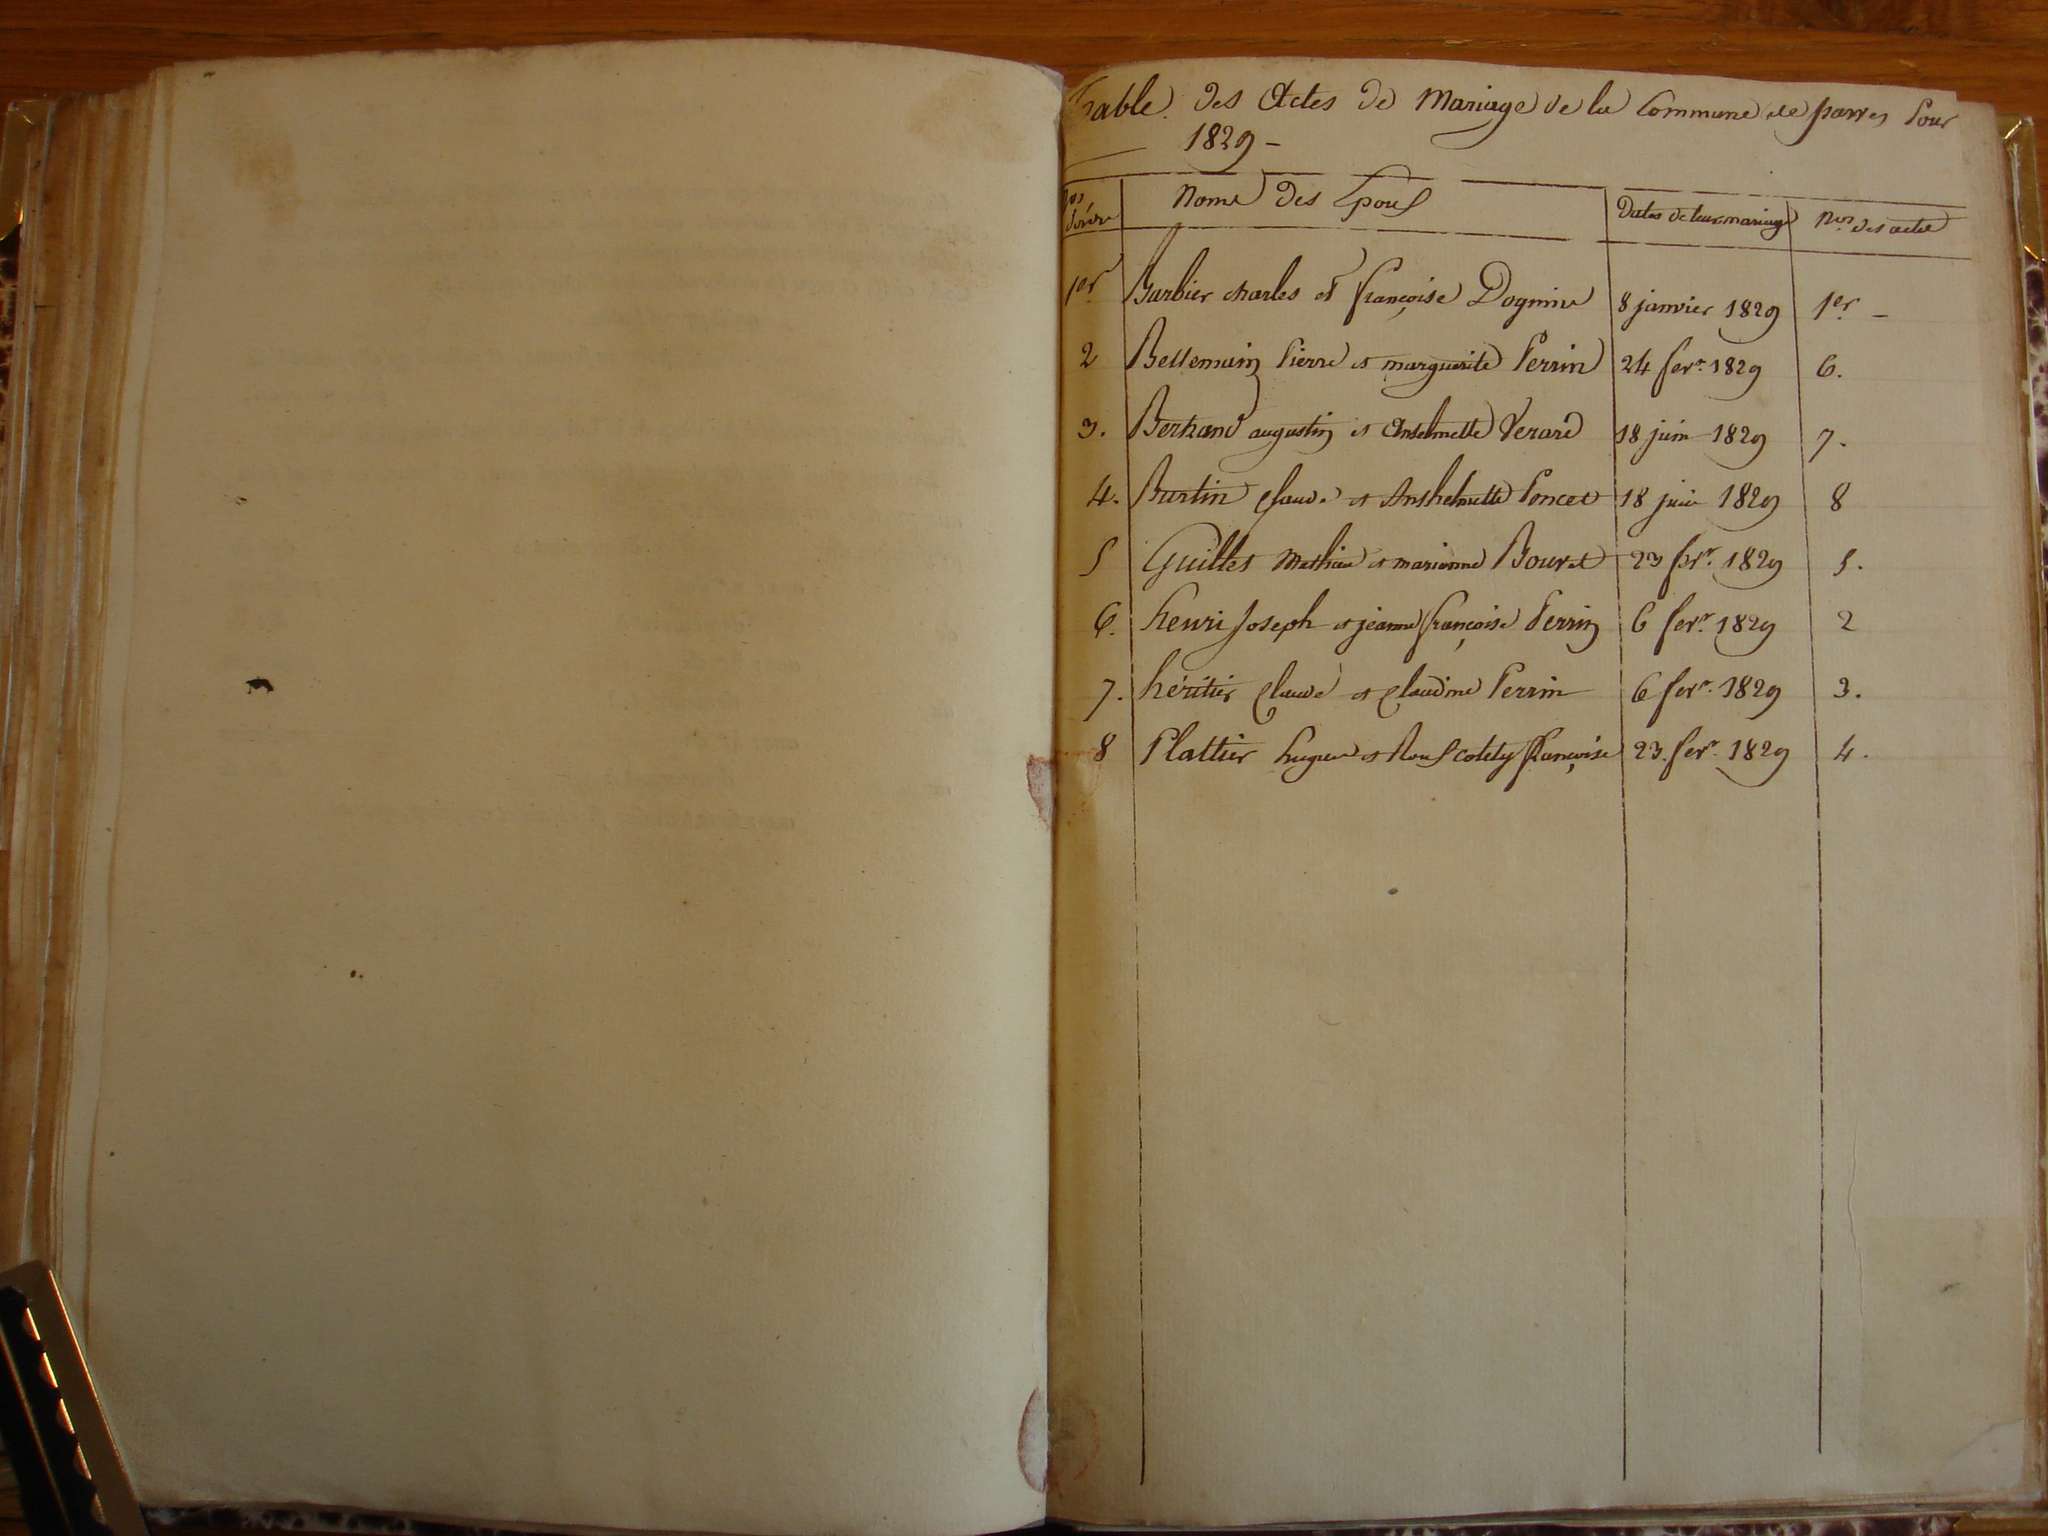 Table des Actes de Mariage de la Commune de parves Pour
1829 -
Nos d'ordre Noms des Epoux Dates de leur mariage Nos des actes
1er Barbier charles et françoise Dognin 8 janvier 1829 1er -
2 Bellemain Pierre et marguerite Perrin 24 fevr. 1829 6.
3. Bertrand augustin et Anselmette Verard 18 juin 1829 7.
4. Burtin Claude et Anthelmette Poncet 18 juin 1829 8
5 Guillet Mathieu et marianne Bouvet 23 fevr. 1829 5.
6. henri Joseph et jeanne françoise Perrin 6 fevr. 1829 2
7. héritier Claude et Claudine Perrin 6 fevr. 1829 3.
8 Plattier hugue et françoise 23. fevr. 1829 4.